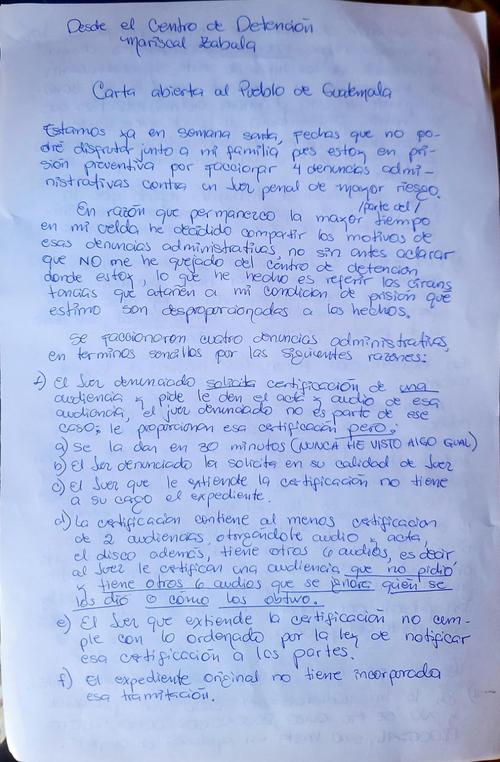 Desde el Centro de Detención
Mariscal Zabala
Carta abierta al Pueblo de Guatemala
Estamos ya en semana santa, fechas que no po-
dré disfrutar junto a mi familia pues estoy en pri-
sión preventiva por faccionar 4 denuncias admi-
nistrativas contra un Juez penal de mayor riesgo.
/parte del/
En razón que permanezco la mayor tiempo
en mi celda, he decidido compartir los motivos de
esas denuncias administrativas, no sin antes aclarar
que NO me he quejado del centro de detención
donde estoy, lo que he hecho es referir las circuns
tancias que atañen a mi condición de prisión que
estimo son desproporcionadas a los hechos.
Se faccionaron cuatro denuncias administrativas,
en terminos sencillos por las siguientes razones:
1) El Juez denunciado solicita certificación de una
audiencia y pide le den el acta y audio de esa
audiencia, el juez denunciado no es parte de ese
caso; le proporcionan esa certificación pero;
a) Se la dan en 30 minutos (NUNCA HE VISTO ALGO IGUAL)
b) El Juez denunciado la solicita en su calidad de Juez
c) El Juez que le extiende la certificación no tiene
a su cargo el expediente.
d) La certificación contiene al menos certificación
de 2 audiencias, otorgándole audio y acta,
el disco además, tiene otros 6 audios, es decir
al Juez le certifican una audiencia que no pidió
y tiene otros 6 audios que se ignora quién se
los dió o cómo los obtuvo.
e) El Juez que extiende la certificación no cum-
ple con lo ordenado por la ley de notificar
esa certificación a las partes.
f) El expediente original no tiene incorporada
esa tramitación.